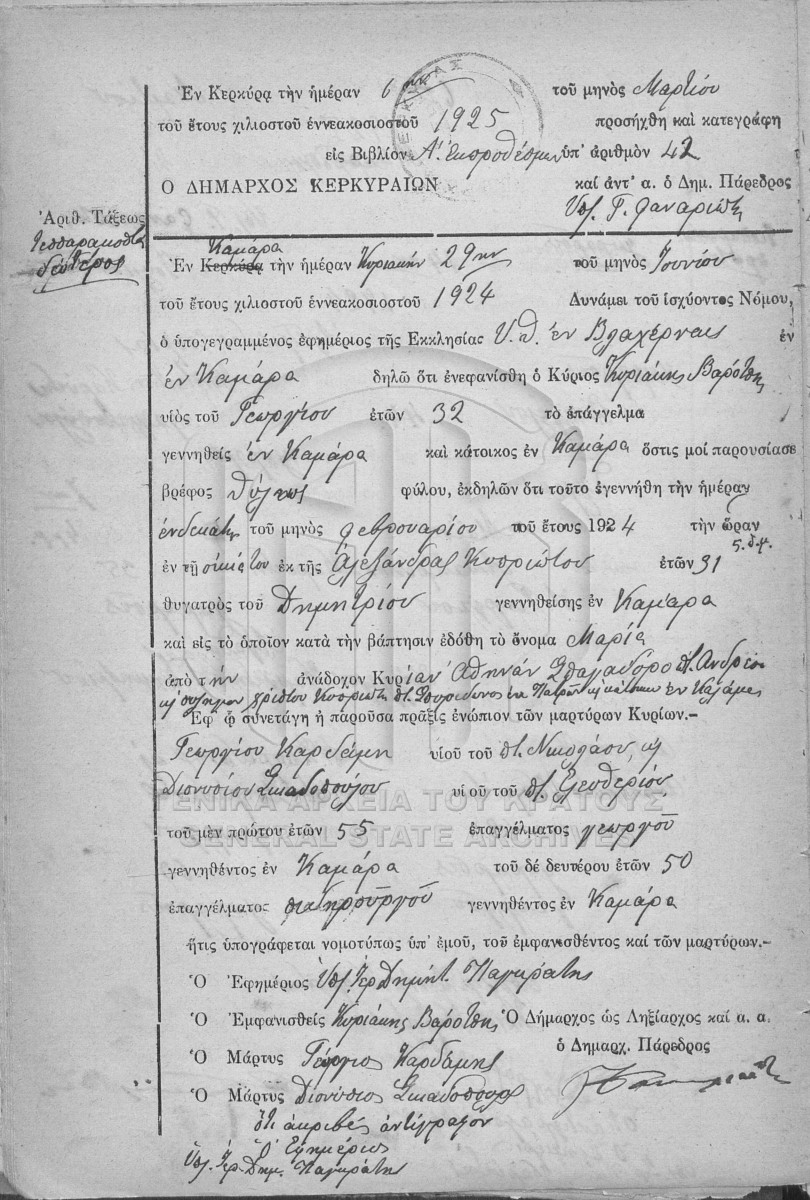 Ἐν Κερκύρᾳ τὴν ἡμέραν 6ην τοῦ μηνὸς Μαρτίου
τοῦ ἔτους χιλιοστοῦ ἐννεακοσιοστοῦ 1925 προσήχθη καὶ κατεγράφη
εἰς Βιβλίον Α. Ἐκπροθέσμων ὑπ' ἀριθμὸν 42
Ο ΔΗΜΑΡΧΟΣ ΚΕΡΚΥΡΑΙΩΝ καὶ ἀντ' α. ὁ Δημ. Πάρεδρος
Ὑπ. Γ. Φαναριώτης
Ἀριθ. Τάξεως
τεσσαρακοστὸς
δεύτερος
Καμάρα
Ἐν Κερκύρᾳ τὴν ἡμέραν Κυριακὴν 29ην τοῦ μηνὸς Ἰουνίου
τοῦ ἔτους χιλιοστοῦ ἐννεακοσιοστοῦ 1924 Δυνάμει τοῦ ἰσχύοντος Νόμου,
ὁ ὑπογεγραμμένος ἐφημέριος τῆς Εκκλησίας Υ.Θ. ἐν Βλαχέρναις ἐν
ἐν Καμάρα δηλῶ ὅτι ἐνεφανίσθη ὁ Κύριος Κυριάκης Βαρότσης
υἱὸς τοῦ Γεωργίου ἐτῶν 32 τὸ ἐπάγγελμα
γεννηθεὶς ἐν Καμάρα καὶ κάτοικος ἐν Καμάρα ὅστις μοί παρουσίασε
βρέφος θήλεως φύλου, ἐκδηλῶν ὅτι τοῦτο ἐγεννήθη τὴν ἡμέραν
ἑνδεκάτην τοῦ μηνὸς Φεβρουαρίου τοῦ ἔτους 1924 τὴν ὥραν
5. π.μ.
ἐν τῇ οἰκίᾳ του ἐκ τῆς Ἀλεξάνδρας Κυπριώτου ἐτῶν 31
θυγατρὸς τοῦ Δημητρίου γεννηθείσης ἐν Καμάρα
καὶ εἰς τὸ ὁποῖον κατὰ τὴν βάπτησιν ἐδόθη τὸ ὄνομα Μαρία
ἀπὸ τὴν ἀνάδοχον Κυρίαν Ἀθηνᾶν Σπαγαδόρο Ἀνδρέου
Χρίστου Κυπριώτη Σπυρίδωνος ἐκ Πατρῶν
Ἐφ' ᾧ συνετάγη ἡ παροῦσα πρᾶξις ἐνώπιον τῶν μαρτύρων Κυρίων.–
Γεωργίου Καρδάμη υἱοῦ τοῦ π. Νικολάου, κ
Διονυσίου Σκιαδοπούλου υἱοῦ τοῦ π. Ἐλευθερίου
ΓΕΝΙΚΑ ΑΡΧΕΙΑ ΤΟΥ ΚΡΑΤΟΥΣ
τοῦ μὲν πρώτου ἐτῶν 55 ἐπαγγέλματος γεωργοῦ
GENERAL STATE ARCHIVES
γεννηθέντος ἐν Καμάρα τοῦ δέ δευτέρου ἐτῶν 50
ἐπαγγέλματος σιδηρουργοῦ γεννηθέντος ἐν Καμάρα
ἥτις ὑπογράφεται νομοτύπως ὑπ' ἐμοῦ, τοῦ ἐμφανισθέντος καὶ τῶν μαρτύρων.–
Ὁ Ἐφημέριος Ὑπ. Ἱερ Δημήτ. Παγκράτης
Ὁ Ἐμφανισθείς Κυριάκης Βαρότσης Ὁ Δήμαρχος ὡς Ληξίαρχος καί α. α.
ὁ Δημαρχ. Πάρεδρος
Ὁ Μάρτυς Γεώργιος Καρδάμης
Ὁ Μάρτυς Διονύσιος Σκιαδόπουλος
ὅτι ἀκριβὲς ἀντίγραφον
Ὁ Ἐφημέριος
Ὑπ. Ἱερ. Δημ. Παγκράτης